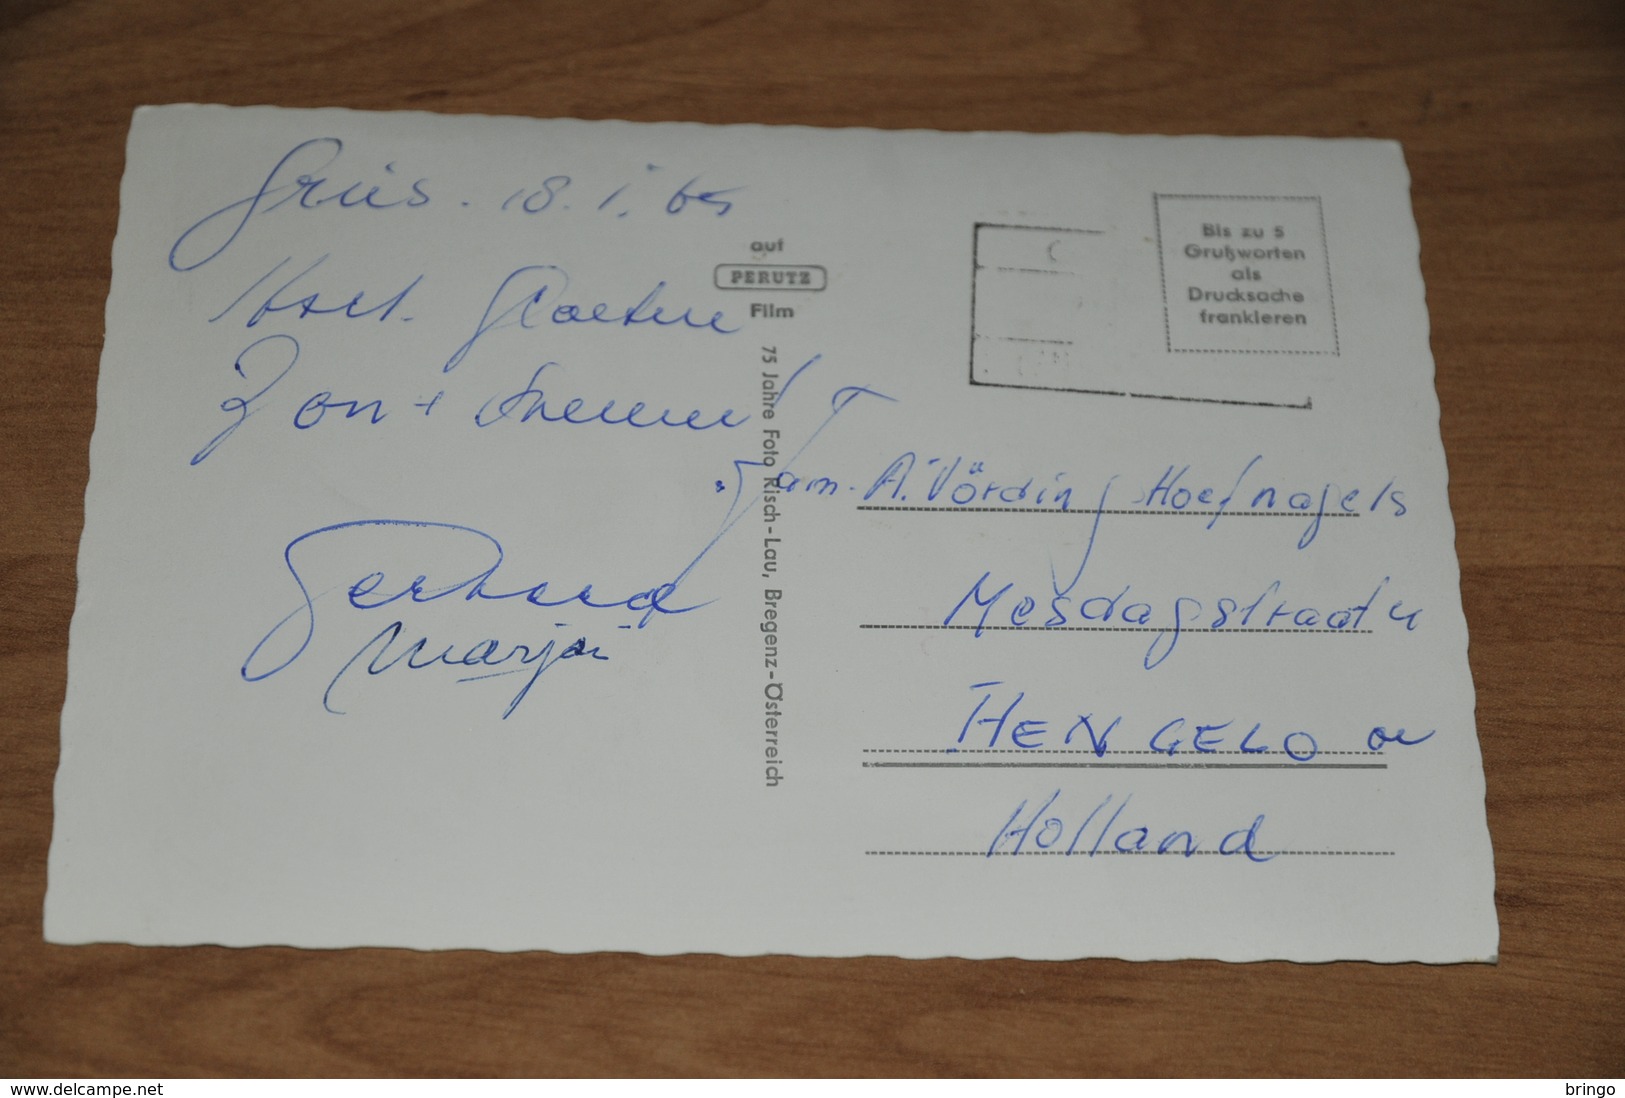 Grüs. 18.1.65
Hart. Groeten
Zon +
Gerhard
Marja
auf
PERUTZ
Film
75 Jahre Foto Risch-Lau, Bregenz-Österreich
Bis zu 5
Grußworten
als
Drucksache
frankieren
Fam. A. Vörding Hoefnagels
Mesdagstraat 4
HENGELO OV
Holland
www.delcampe.net
bringo